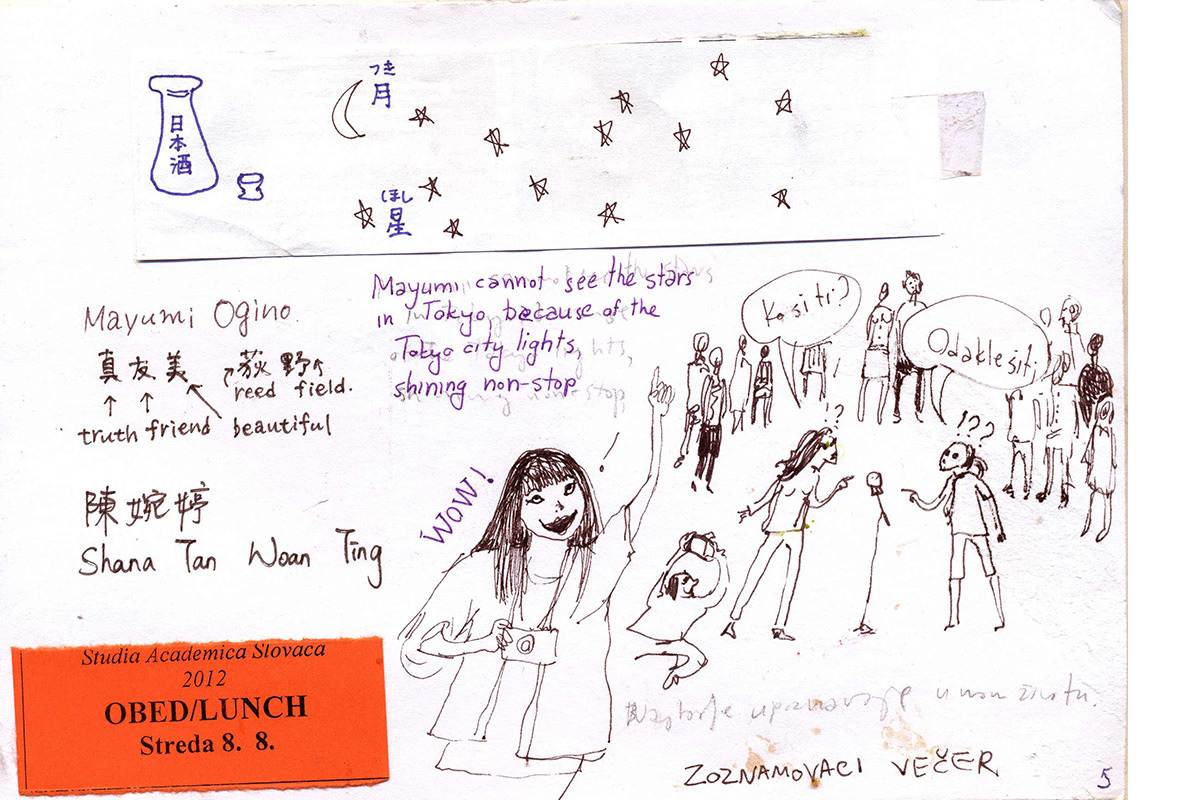 つき
月
日本酒
ほし
星
Mayumi cannot see the stars
in Tokyo, because of the
Tokyo city lights,
shining non-stop
Mayumi Ogino.
真友美 荻野
reed field.
truth friend beautiful
陳婉婷
Shana Tan Woan Ting
WOW!
!
Ko si ti?
Odakle si ti
!?
!??
Studia Academica Slovaca
2012
OBED/LUNCH
Streda 8. 8.
upoznavanje u mom životu.
ZOZNAMOVACI VEČER
5